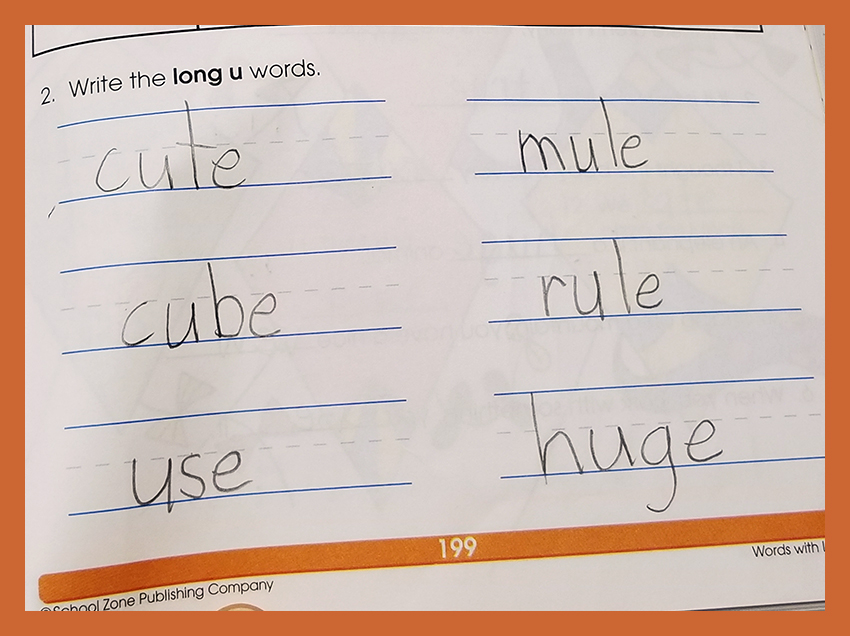 2. Write the long u words.
cute mule
cube rule
use huge
199
Words with
©School Zone Publishing Company